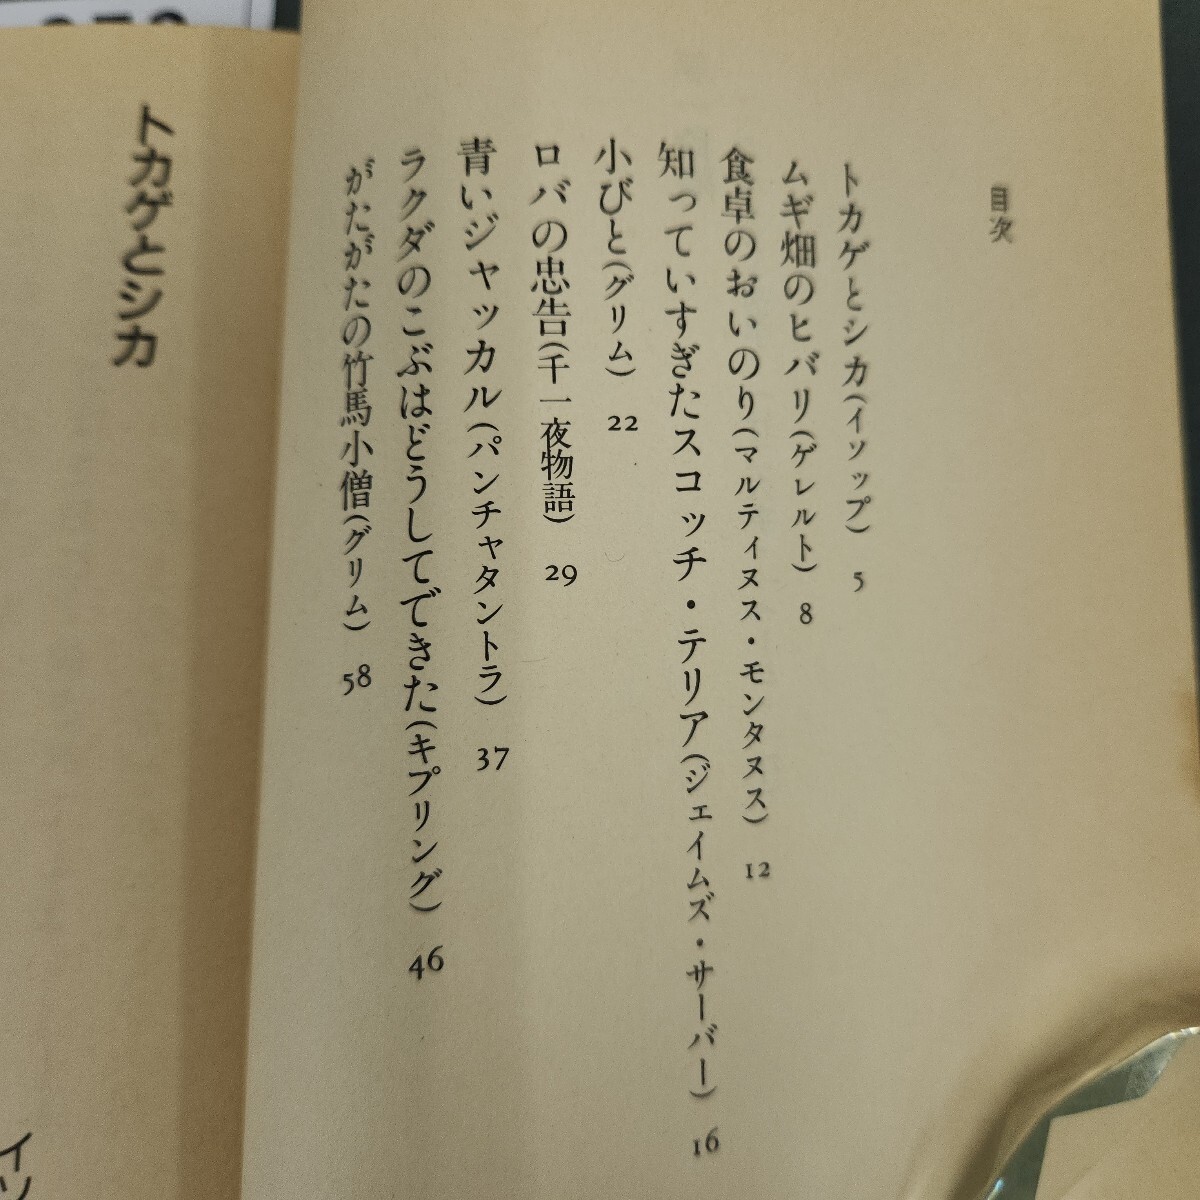 目次
トカゲとシカ(イソップ) 5
ムギ畑のヒバリ(ゲレルト) 8
食卓のおいのり(マルティヌス・モンタヌス) 12
知っていすぎたスコッチ・テリア(ジェイムズ・サーバー) 16
小びと(グリム) 22
ロバの忠告(千一夜物語) 29
青いジャッカル(パンチャタントラ) 37
ラクダのこぶはどうしてできた(キプリング) 46
がたがたの竹馬小僧(グリム) 58
トカゲとシカ
イソ